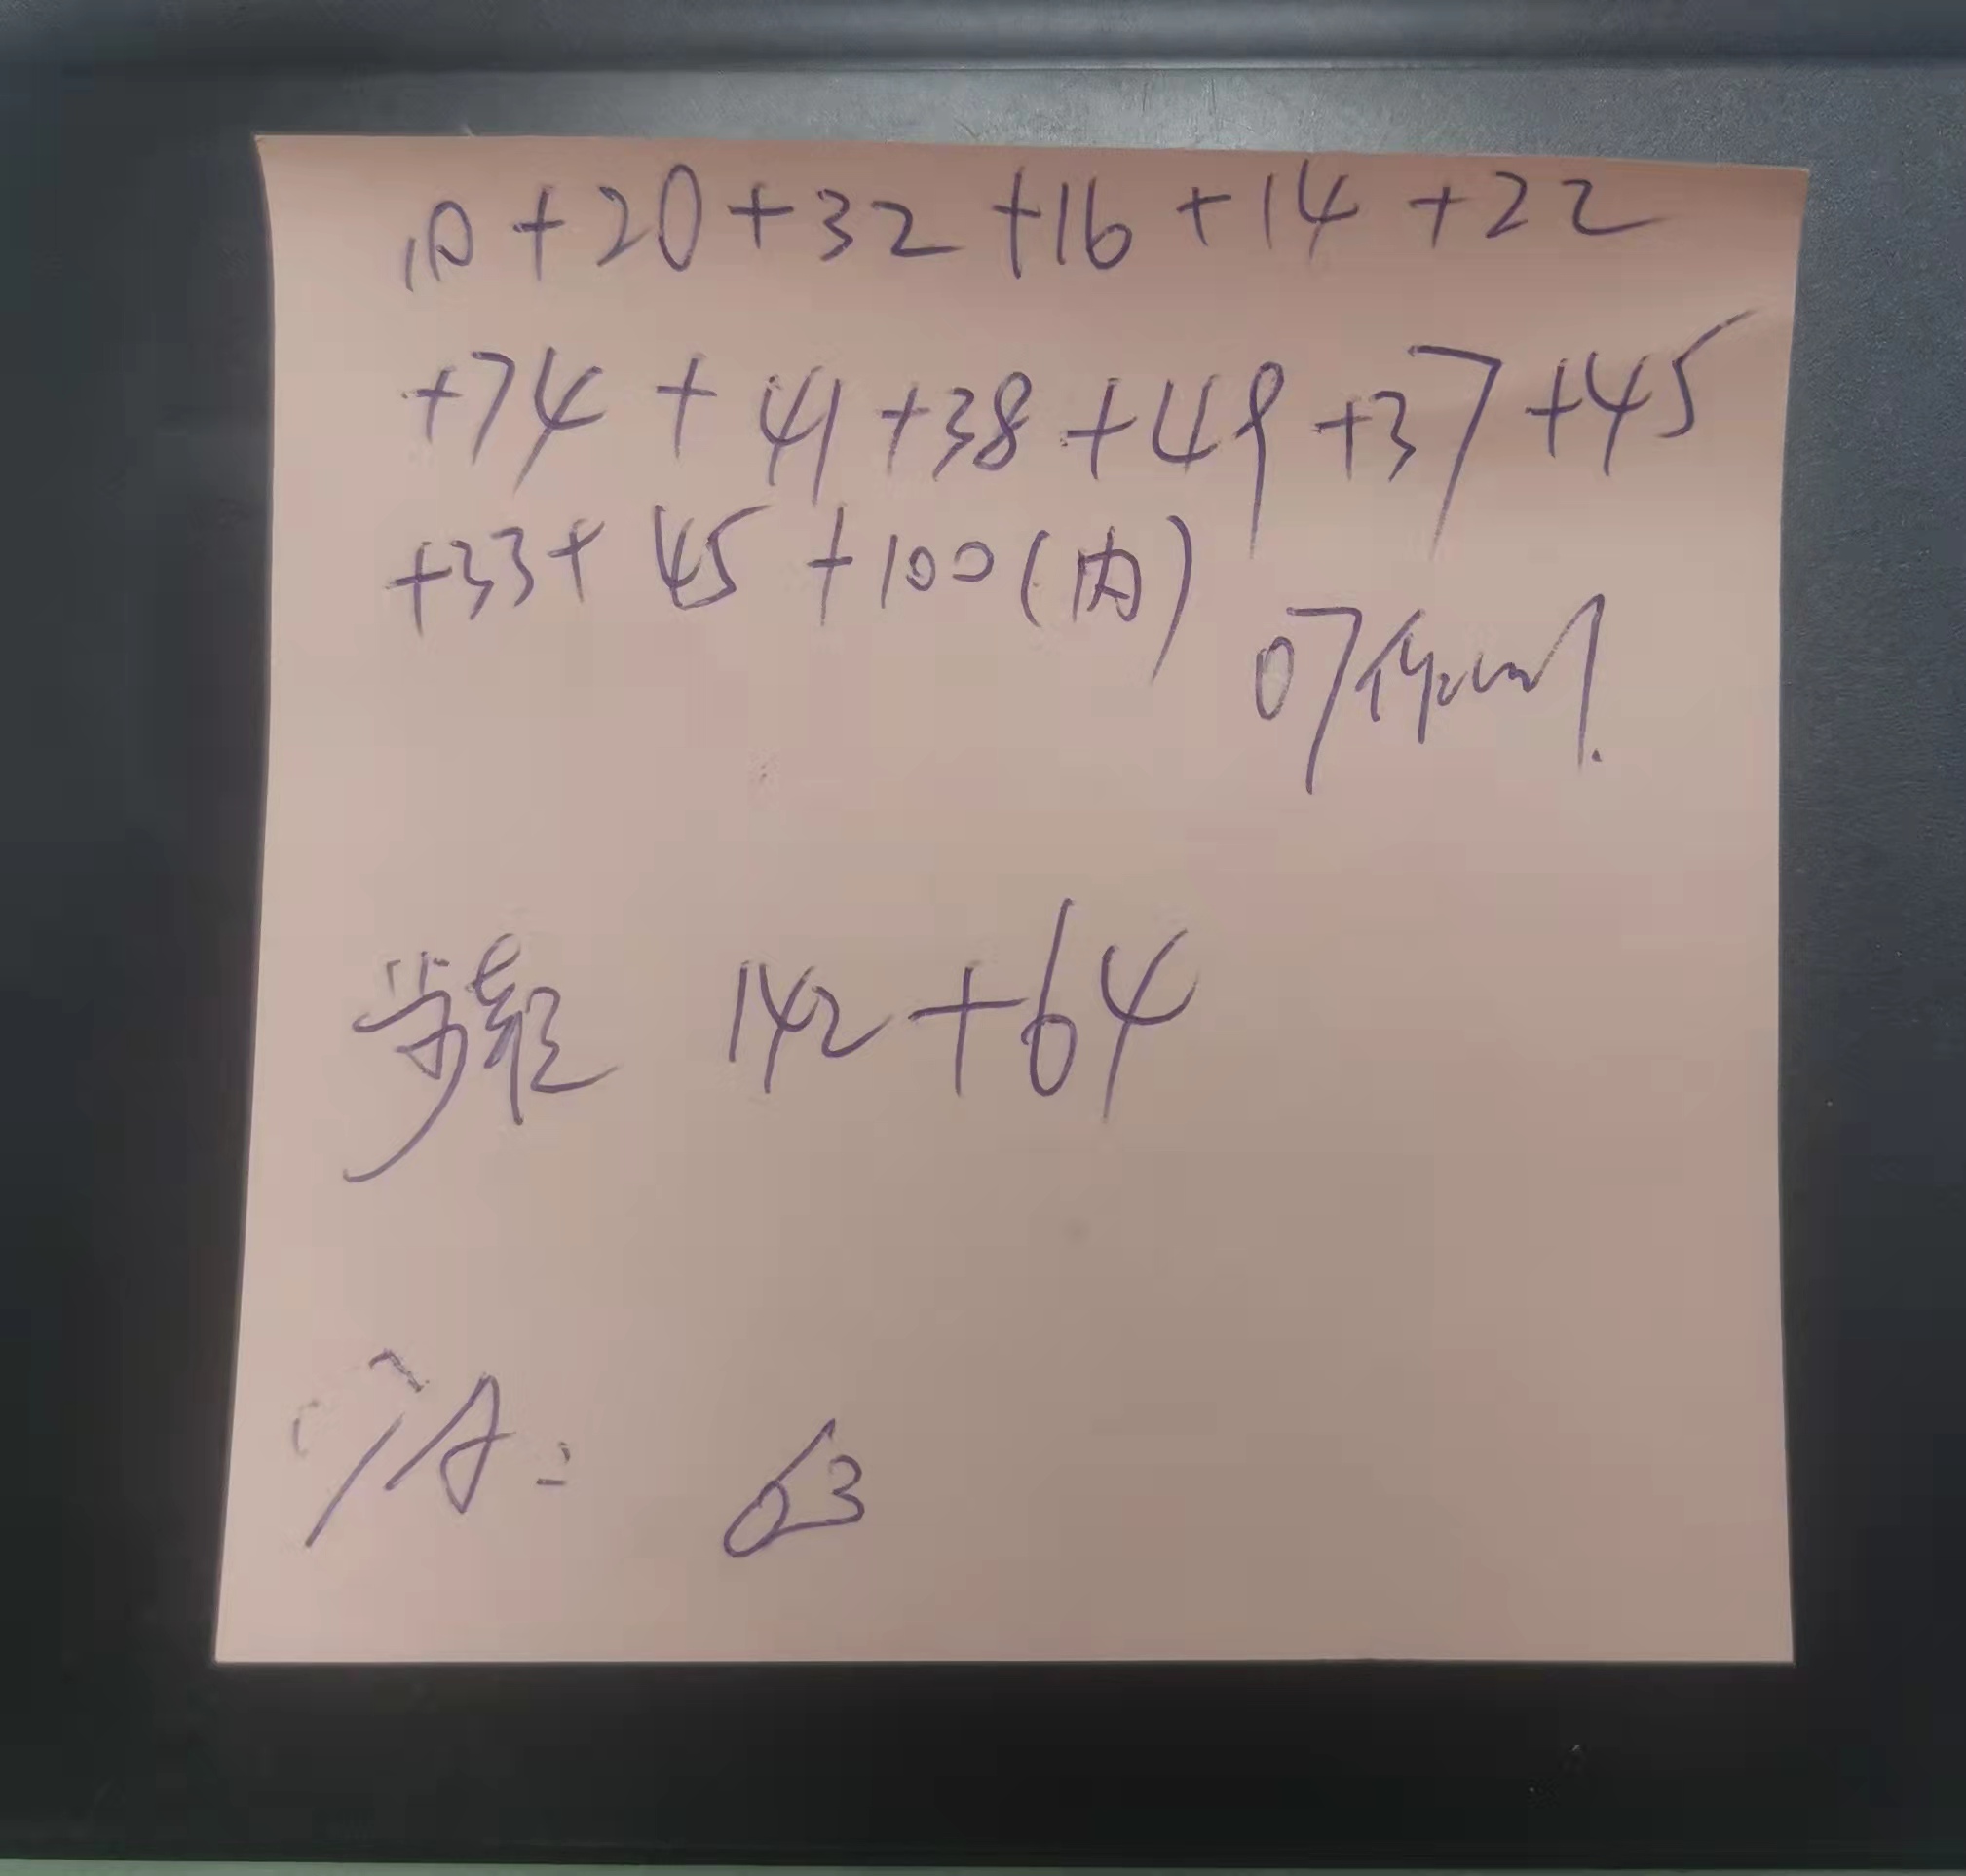 10+20+32+16+14+22
+74+41+38+49+37+45
+33+45+100(内)
07
步骤 142+64
63